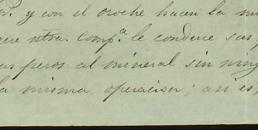 y con el oroche hacen la
ntra. Comp.ª le conduce sus
pesos al mineral sin
la misma operacion; asi es,